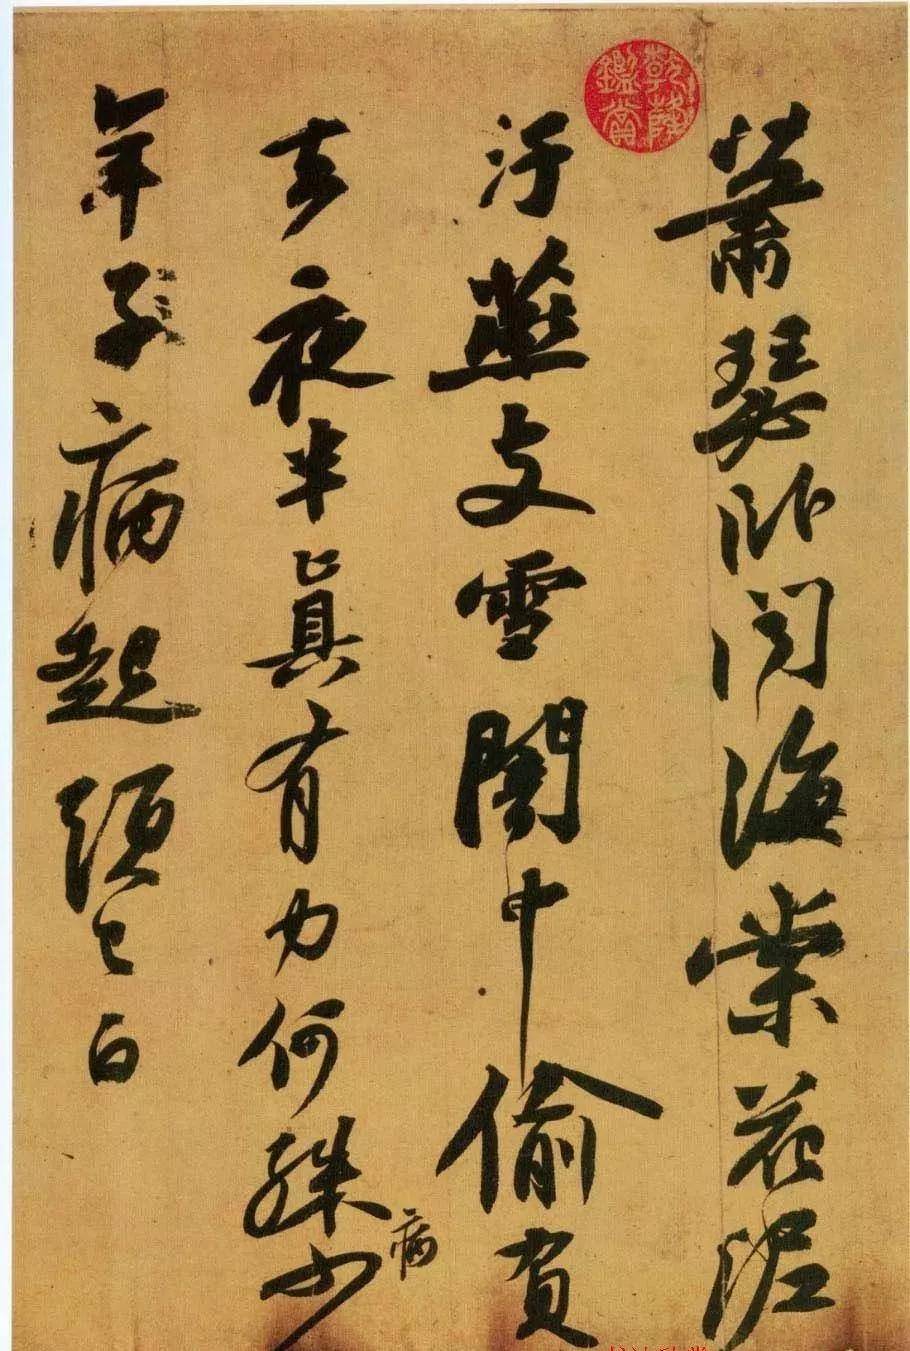 蕭瑟臥聞海棠花泥
汙燕支雪闇中偷負
去夜半真有力何殊少
病
年子病起頭已白
乾隆
鑑賞